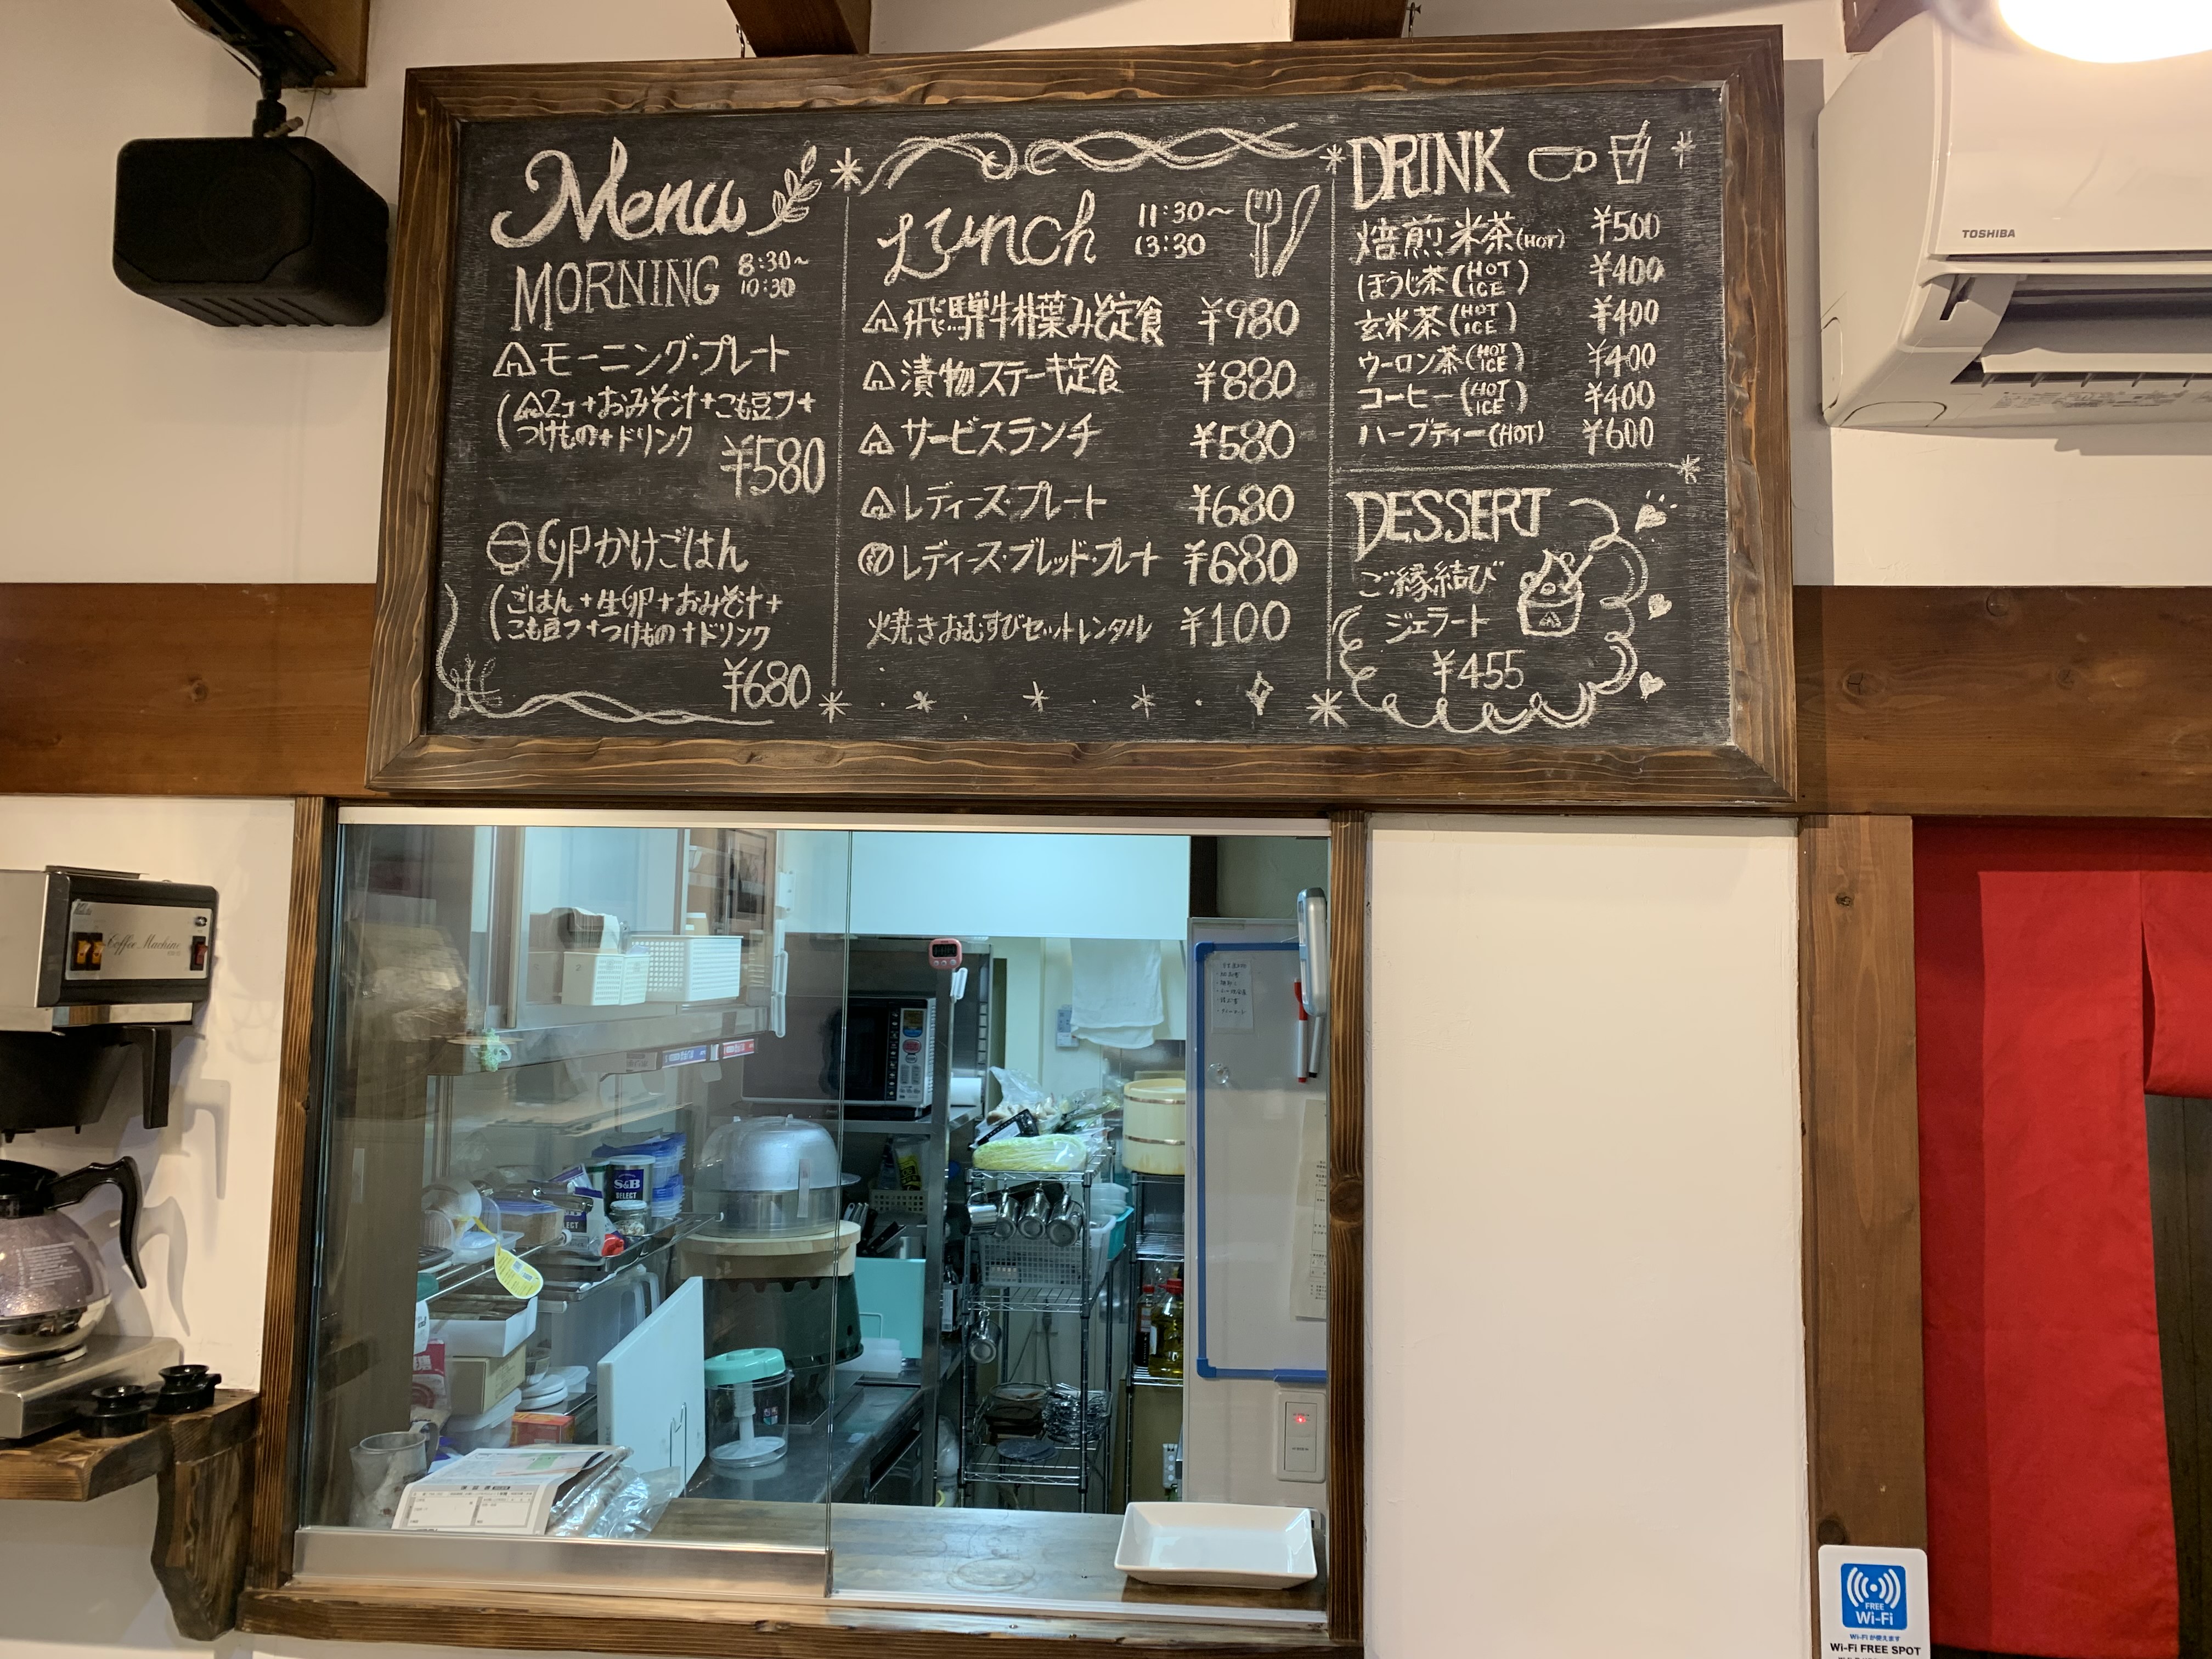 Menu
MORNING 8:30~
10:30
モーニング・プレート
(2コ+おみそ汁+こも豆フ+
つけもの+ドリンク
¥580
卵かけごはん
(ごはん+生卵+おみそ汁+
こも豆フ+つけもの+ドリンク
¥680
Lunch 11:30~
13:30
飛騨牛朴葉みそ定食 ¥980
漬物ステーキ定食 ¥880
サービスランチ ¥580
レディース・プレート ¥680
レディース・ブレッド・プレート ¥680
焼きおむすびセットレンタル ¥100
DRINK
焙煎米茶(HOT) ¥500
ほうじ茶(HOT ICE) ¥400
玄米茶(HOT ICE) ¥400
ウーロン茶(HOT ICE) ¥400
コーヒー(HOT ICE) ¥400
ハーブティー(HOT) ¥600
DESSERT
ご縁結び
ジェラート
¥455
TOSHIBA
Coffee Machine
S&B
SELECT
FREE
Wi-Fi
Wi-Fiが使えます
Wi-Fi FREE SPOT